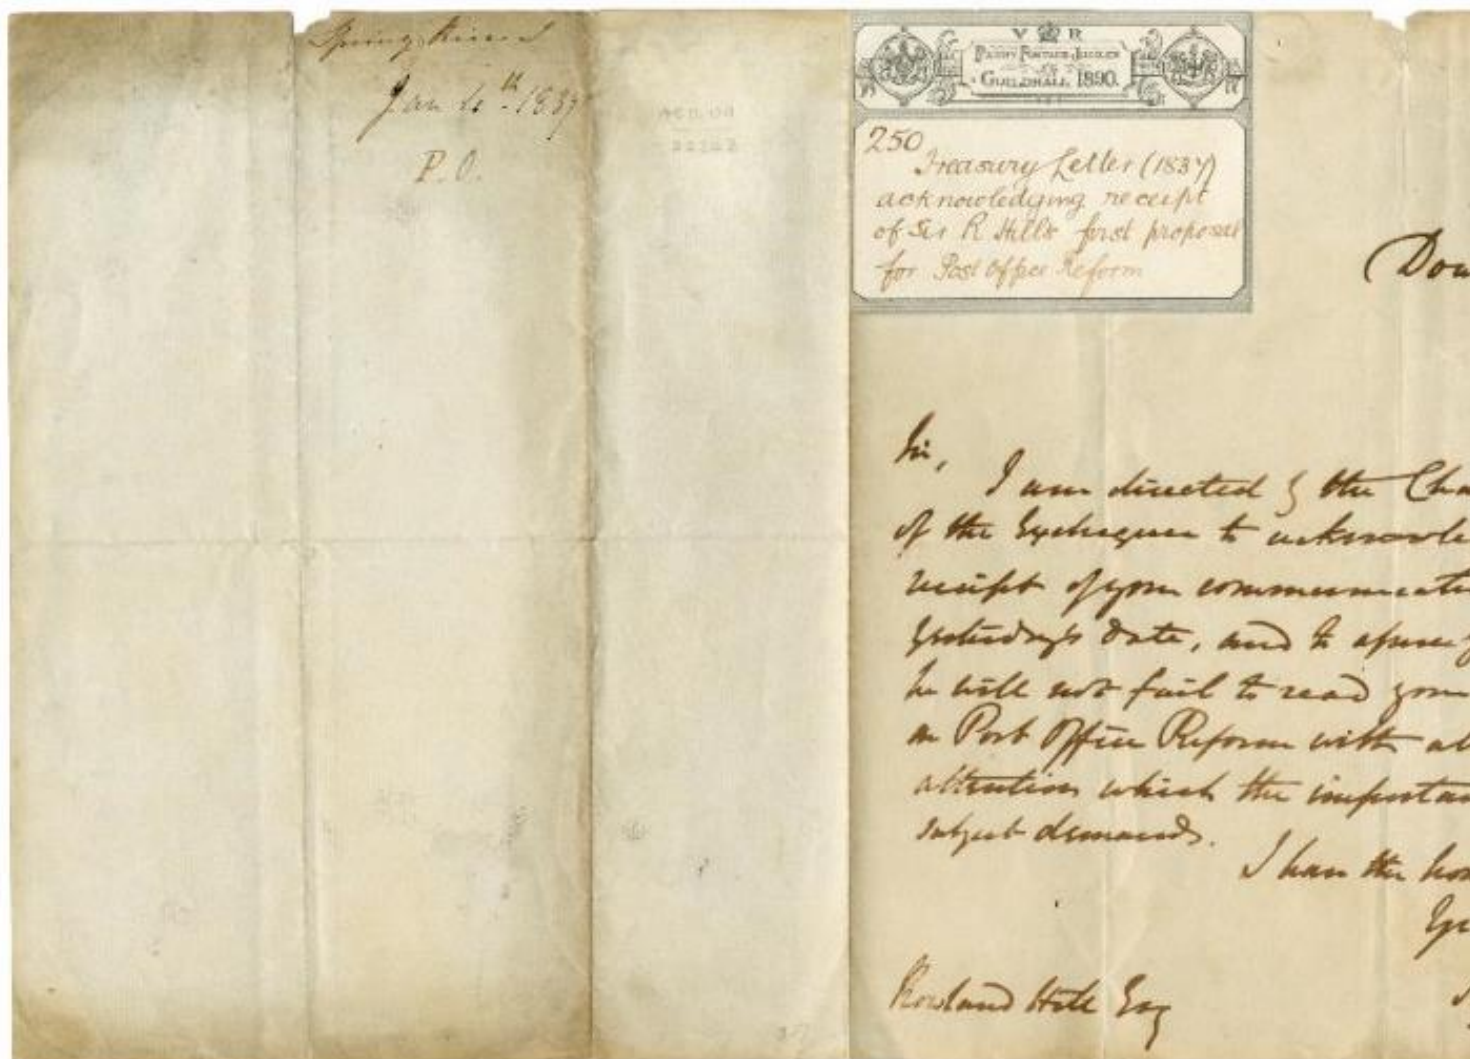 Spring Rice
Jan 4th 1837
P.O.
V R
PENNY POSTAGE JUBILEE
GUILDHALL 1890.
250
Treasury Letter (1837)
acknowledging receipt
of Sir R Hill's first proposal
for Post Office Reform
Dow
Sir,
I am directed by the Cha
of the Exchequer to acknowle
receipt of your communicati
yesterday's date, and to assure y
he will not fail to read your
on Post Office Reform with al
attention which the importan
subject demands.
I have the hon
Yr
Rowland Hill Esq